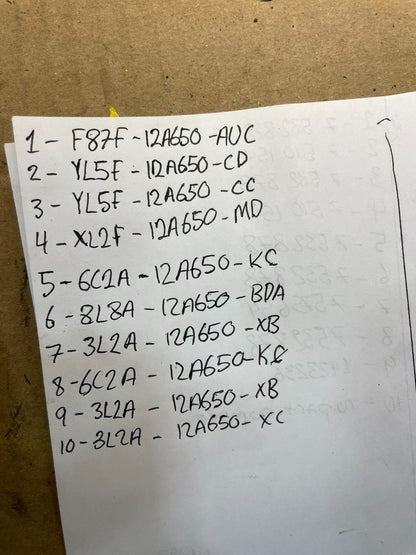 1 - F87F - 12A650 - AUC
2 - YL5F - 12A650 - CD
3 - YL5F - 12A650 - CC
4 - XL2F - 12A650 - MD
5 - 6C2A - 12A650 - KC
6 - 8L8A - 12A650 - BDA
7 - 3L2A - 12A650 - XB
8 - 6C2A - 12A650 - KC
9 - 3L2A - 12A650 - XB
10 - 3L2A - 12A650 - XC